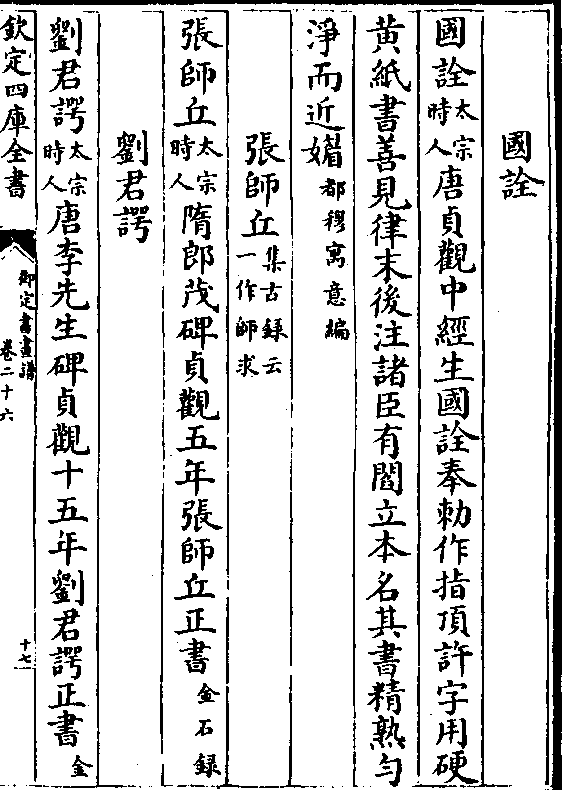 國詮
國詮太宗時人唐貞觀中經生國詮奉勅作指頂許字用硬
黄紙書善見律末後注諸臣有閻立本名其書精熟勻
淨而近媚都穆寓意編
張師丘集古録云一作師求
張師丘太宗時人隋郎茂碑貞觀五年張師丘正書金石録
劉君諤
劉君諤太宗時人唐李先生碑貞觀十五年劉君諤正書金
欽定四庫全書
御定書畫譜
卷二十六
十七